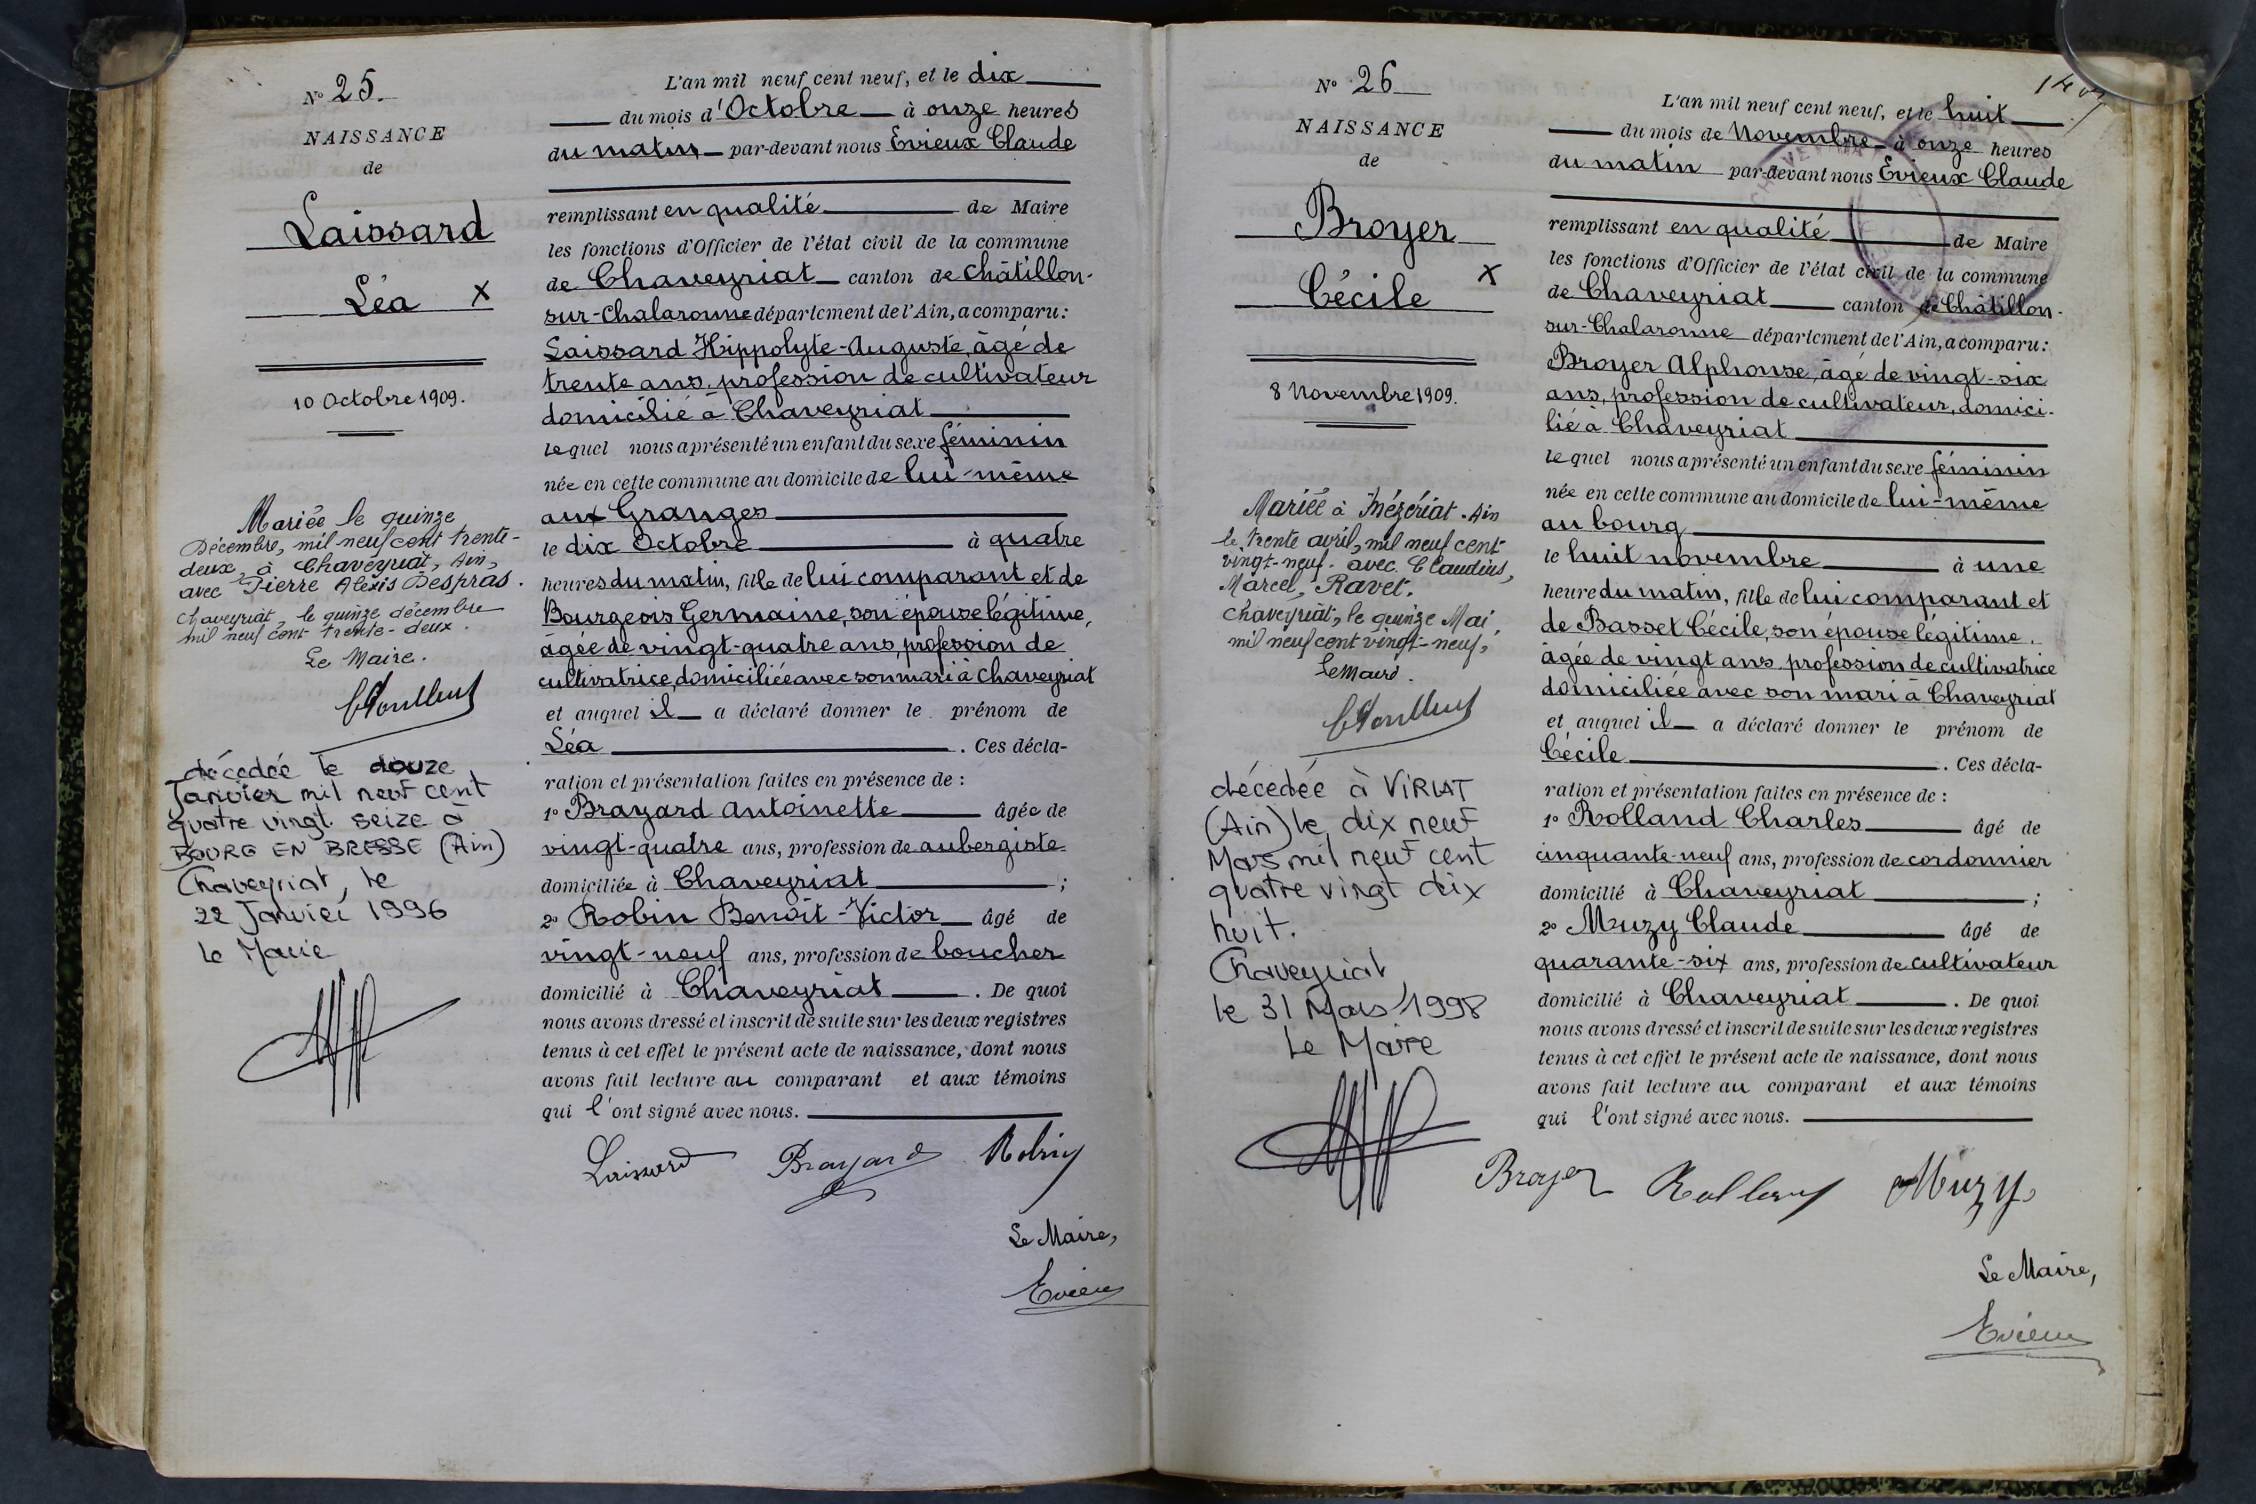 N° 25.
NAISSANCE
de
Laissard
Léa X
10 Octobre 1909.
Mariée le quinze
Décembre, mil neuf cent trente-
deux, à Chaveyriat, Ain,
avec Pierre Alexis Despras.
Chaveyriat, le quinze décembre
mil neuf cent trente-deux.
Le Maire.
décédée le douze
Janvier mil neuf cent
quatre vingt seize à
BOURG EN BRESSE (Ain)
Chaveyriat, le
22 Janvier 1996
le Maire
L'an mil neuf cent neuf, et le dix
du mois d'Octobre à onze heures
du matin par-devant nous Evieux Claude
remplissant en qualité de Maire
les fonctions d'Officier de l'état civil de la commune
de Chaveyriat canton de Châtillon-
sur-Chalaronne département de l'Ain, a comparu:
Laissard Hippolyte-Auguste, âgé de
trente ans, profession de cultivateur
domicilié à Chaveyriat
lequel nous a présenté un enfant du sexe féminin
née en cette commune au domicile de lui-même
aux Granges
le dix Octobre à quatre
heures du matin, fille de lui comparant et de
Bourgeois Germaine, son épouse légitime,
âgée de vingt-quatre ans, profession de
cultivatrice, domiciliée avec son mari à Chaveyriat
et auquel il a déclaré donner le prénom de
Léa . Ces décla-
ration et présentation faites en présence de :
1° Brayard Antoinette âgée de
vingt-quatre ans, profession de aubergiste
domiciliée à Chaveyriat ;
2° Robin Benoît-Victor âgé de
vingt-neuf ans, profession de boucher
domicilié à Chaveyriat . De quoi
nous avons dressé et inscrit de suite sur les deux registres
tenus à cet effet le présent acte de naissance, dont nous
avons fait lecture au comparant et aux témoins
qui l'ont signé avec nous.
Laissard Brayard Robin
Le Maire,
Evieux
N° 26
NAISSANCE
de
Broyer
Cécile X
8 Novembre 1909.
Mariée à Mézériat. Ain
le trente avril, mil neuf cent
vingt-neuf. avec Claudius,
Marcel, Ravet.
Chaveyriat, le quinze Mai
mil neuf cent vingt-neuf,
Le Maire.
décédée à VIRIAT
(Ain) le dix neuf
Mars mil neuf cent
quatre vingt dix
huit.
Chaveyriat,
le 31 Mars 1998
Le Maire
L'an mil neuf cent neuf, et le huit
du mois de Novembre à onze heures
du matin par-devant nous Evieux Claude
remplissant en qualité de Maire
les fonctions d'Officier de l'état civil de la commune
de Chaveyriat canton de Châtillon-
sur-Chalaronne département de l'Ain, a comparu:
Broyer Alphonse, âgé de vingt-six
ans, profession de cultivateur, domici-
lié à Chaveyriat
lequel nous a présenté un enfant du sexe féminin
née en cette commune au domicile de lui-même
au bourg
le huit novembre à une
heure du matin, fille de lui comparant et
de Basset Cécile, son épouse légitime.
âgée de vingt ans profession de cultivatrice
domiciliée avec son mari à Chaveyriat
et auquel il a déclaré donner le prénom de
Cécile . Ces décla-
ration et présentation faites en présence de :
1° Rolland Charles âgé de
cinquante-neuf ans, profession de cordonnier
domicilié à Chaveyriat ;
2° Muzy Claude âgé de
quarante-six ans, profession de cultivateur
domicilié à Chaveyriat . De quoi
nous avons dressé et inscrit de suite sur les deux registres
tenus à cet effet le présent acte de naissance, dont nous
avons fait lecture au comparant et aux témoins
qui l'ont signé avec nous.
Broyer Rolland Muzy
Le Maire,
Evieux